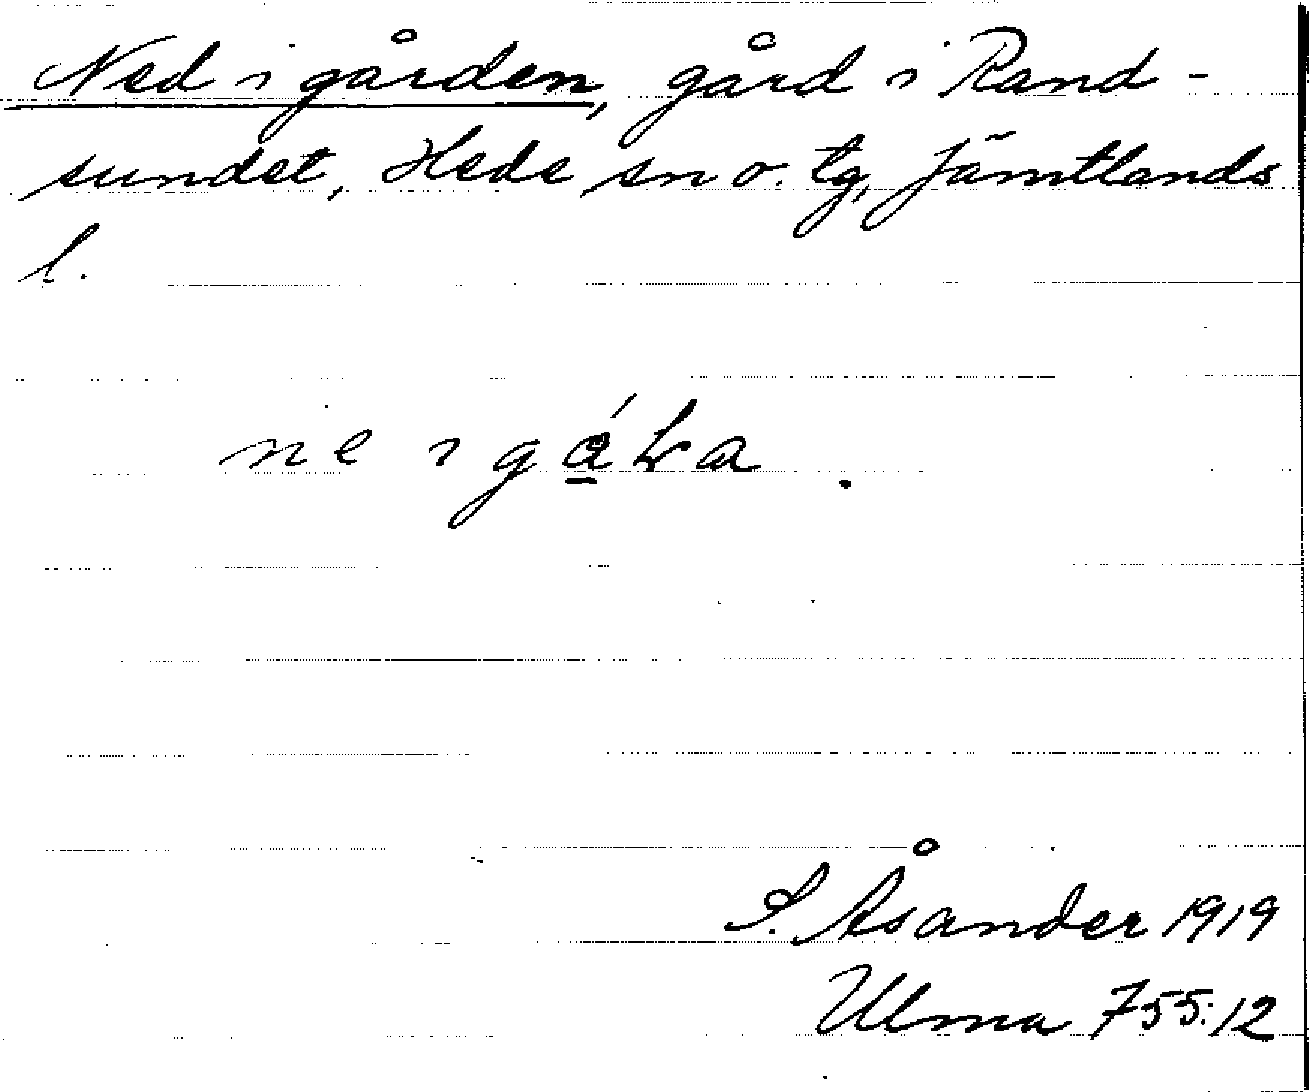 Ned i gården, gård i Rand-
sundet, Hede sn o. tg, Jämtlands
l.
ne i
S. Åsander 1919
Ulma 755:12